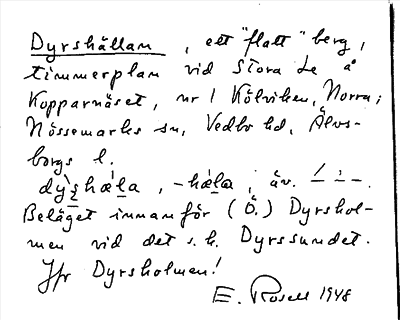 Dyrshällan, ett "flatt" berg,
timmerplan vid Stora Le å
Kopparnäset, nr 1 Kölviken, Norra;
Nössemarks sn, Vedbo hd, Älvs-
borgs l.
dy`s̱hæ´la, -hæla; äv.
Beläget innanför (Ö.) Dyrshol-
men vid det s.k. Dyrssundet.
Jfr Dyrsholmen!
E. Rosell 1948